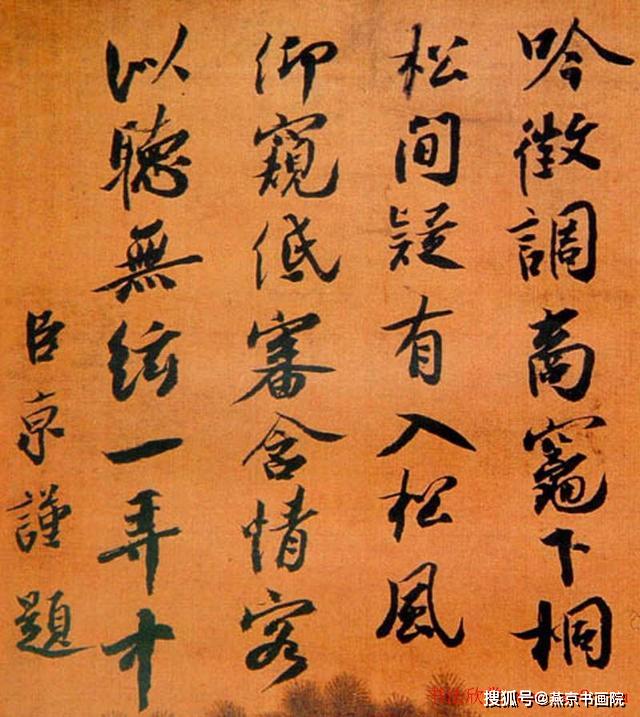 吟徵調商竈下桐
松間疑有入松風
仰窺低審含情客
似聽無絃一弄中
臣京謹題
书法欣
搜狐号@燕京书画院